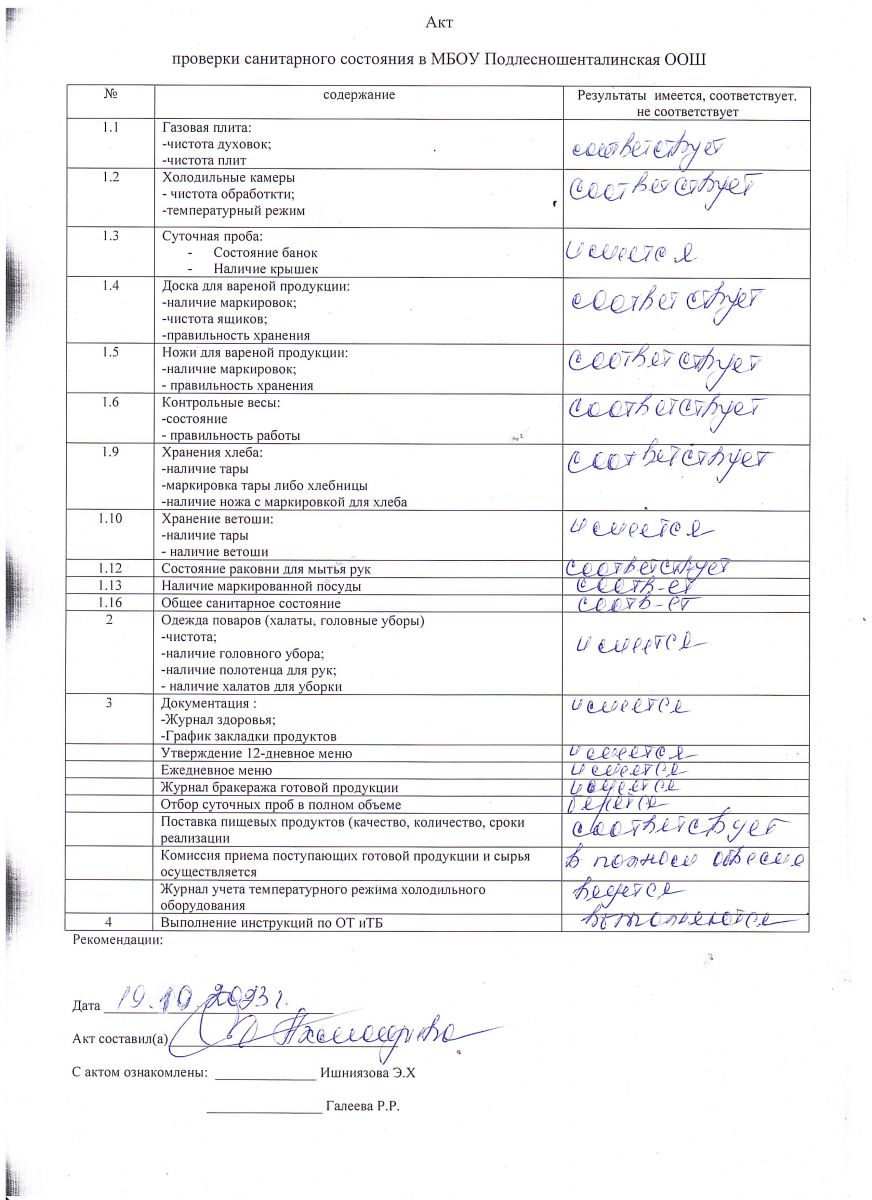 Акт
проверки санитарного состояния в МБОУ Подлесношенталинская ООШ
№ содержание Результаты имеется, соответствует.
не соответствует
1.1 Газовая плита:
-чистота духовок;
-чистота плит соответствует
1.2 Холодильные камеры
- чистота обработкти; соответствует
-температурный режим
1.3 Суточная проба:
- Состояние банок имеется
- Наличие крышек
1.4 Доска для вареной продукции:
-наличие маркировок; соответствует
-чистота ящиков;
-правильность хранения
1.5 Ножи для вареной продукции:
-наличие маркировок; соответствует
- правильность хранения
1.6 Контрольные весы: соответствует
-состояние
- правильность работы
1.9 Хранения хлеба: соответствует
-наличие тары
-маркировка тары либо хлебницы
-наличие ножа с маркировкой для хлеба
1.10 Хранение ветоши: имеется
-наличие тары
- наличие ветоши
1.12 Состояние раковни для мытья рук соответствует
1.13 Наличие маркированной посуды соотв-ет
1.16 Общее санитарное состояние соотв-ет
2 Одежда поваров (халаты, головные уборы)
-чистота; имеется
-наличие головного убора;
-наличие полотенца для рук;
- наличие халатов для уборки
3 Документация : имеется
-Журнал здоровья;
-График закладки продуктов
Утверждение 12-дневное меню имеется
Ежедневное меню имеется
Журнал бракеража готовой продукции имеется
Отбор суточных проб в полном объеме берется
Поставка пищевых продуктов (качество, количество, сроки соответствует
реализации
Комиссия приема поступающих готовой продукции и сырья в полном объеме
осуществляется
Журнал учета температурного режима холодильного ведется
оборудования
4 Выполнение инструкций по ОТ иТБ выполняются
Рекомендации:
Дата 19.10.2023г.
Акт составил(а)
С актом ознакомлены: Ишниязова Э.Х
Галеева Р.Р.